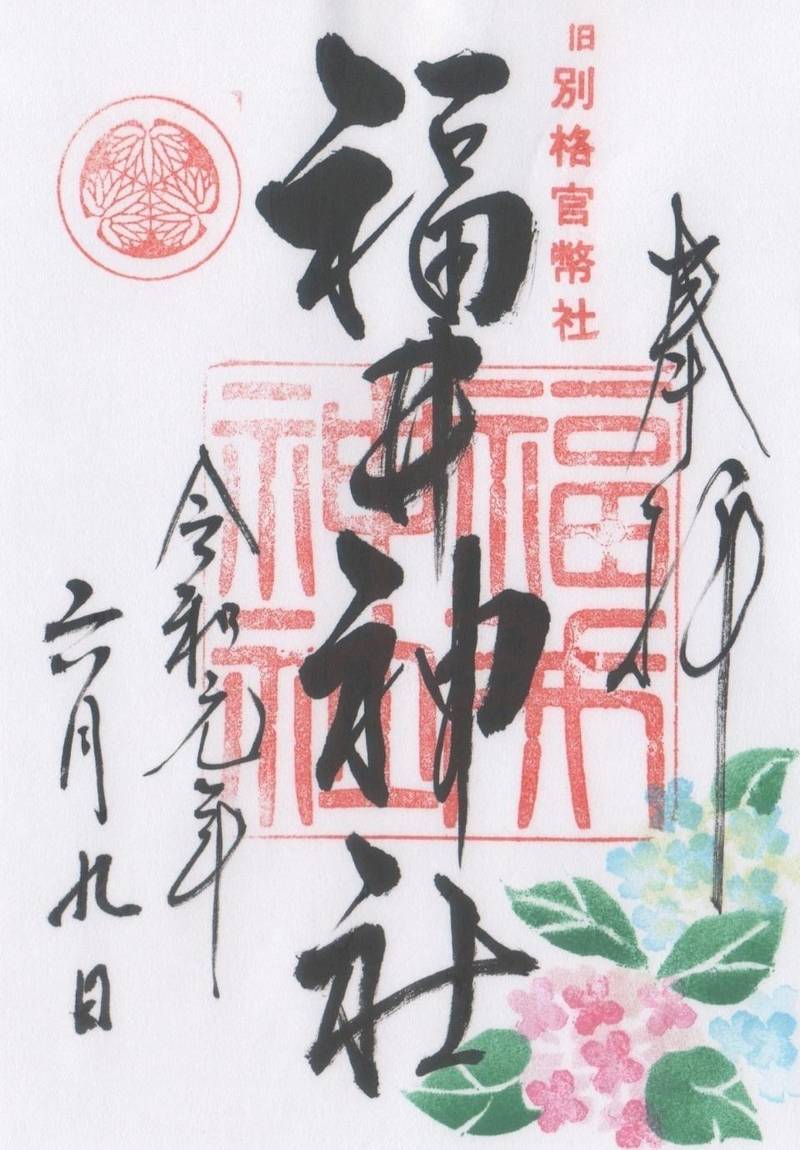 奉拝
旧別格官幣社
福井神社
福井
神社
令和元年
六月九日